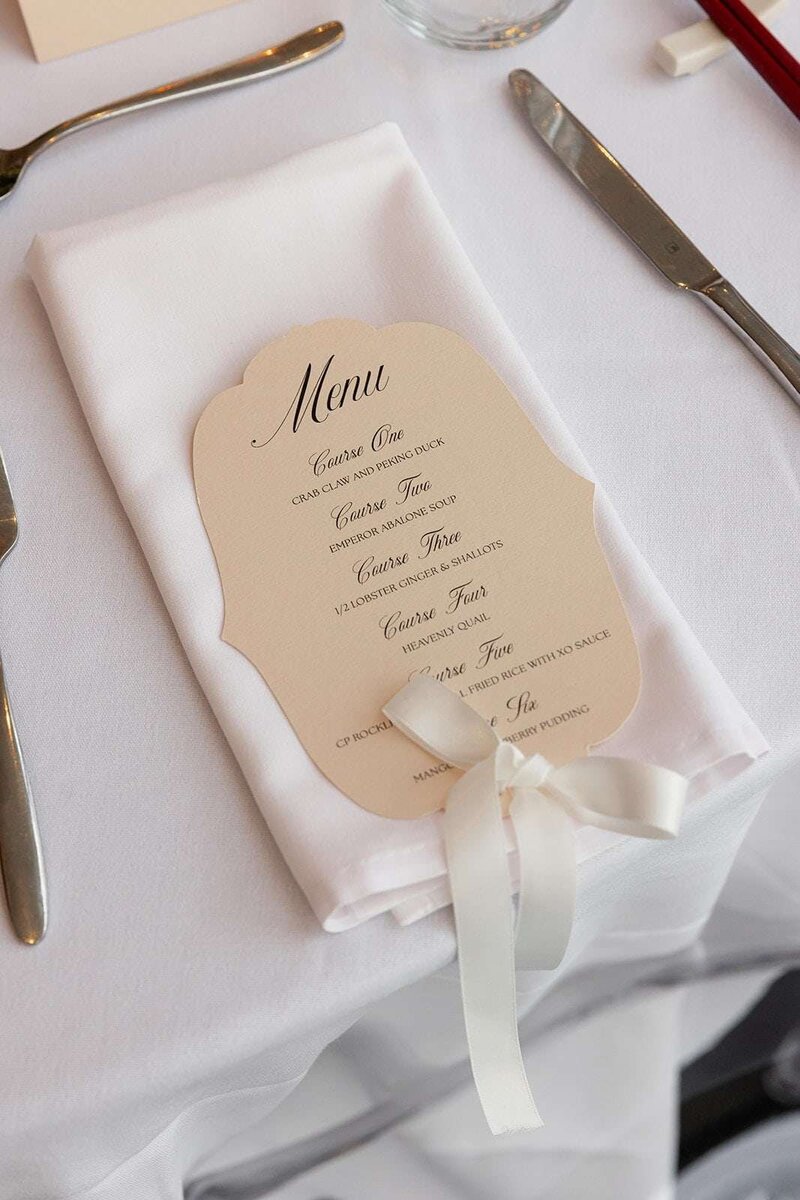 Menu
Course One
CRAB CLAW AND PEKING DUCK
Course Two
EMPEROR ABALONE SOUP
Course Three
1/2 LOBSTER GINGER & SHALLOTS
Course Four
HEAVENLY QUAIL
Course Five
CP FRIED RICE WITH XO SAUCE
Six
PUDDING